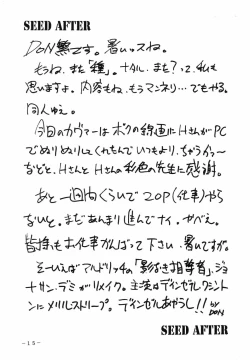 SEED AFTER
DON繁です。暑いっスね。
もうね、また「種」。ナタル、また?って、私も
思いますよ。内容もね、もうマンネリ…でもやる。
同人ゆえ。
今回のカヴァーはボクの線画にHさんがPC
でぬりぬりしてくれたんでいつもより、ちがうィ〜
などと。Hさんと Hさんの彩色の先生に感謝。
あと一週間くらいで20P(仕事)やら
ないと。まだあんまり進んでナイ。やべえ。
皆様もお仕事がんばって下さい、暑いですが。
そーいえばアルドリッチの「影なき狙撃者」、ジョ
ナサン・デミがリメイク。主演はデインゼルワシント
ンにメリルストリープ。デインゼルあやうし!! by DON
SEED AFTER
-15-